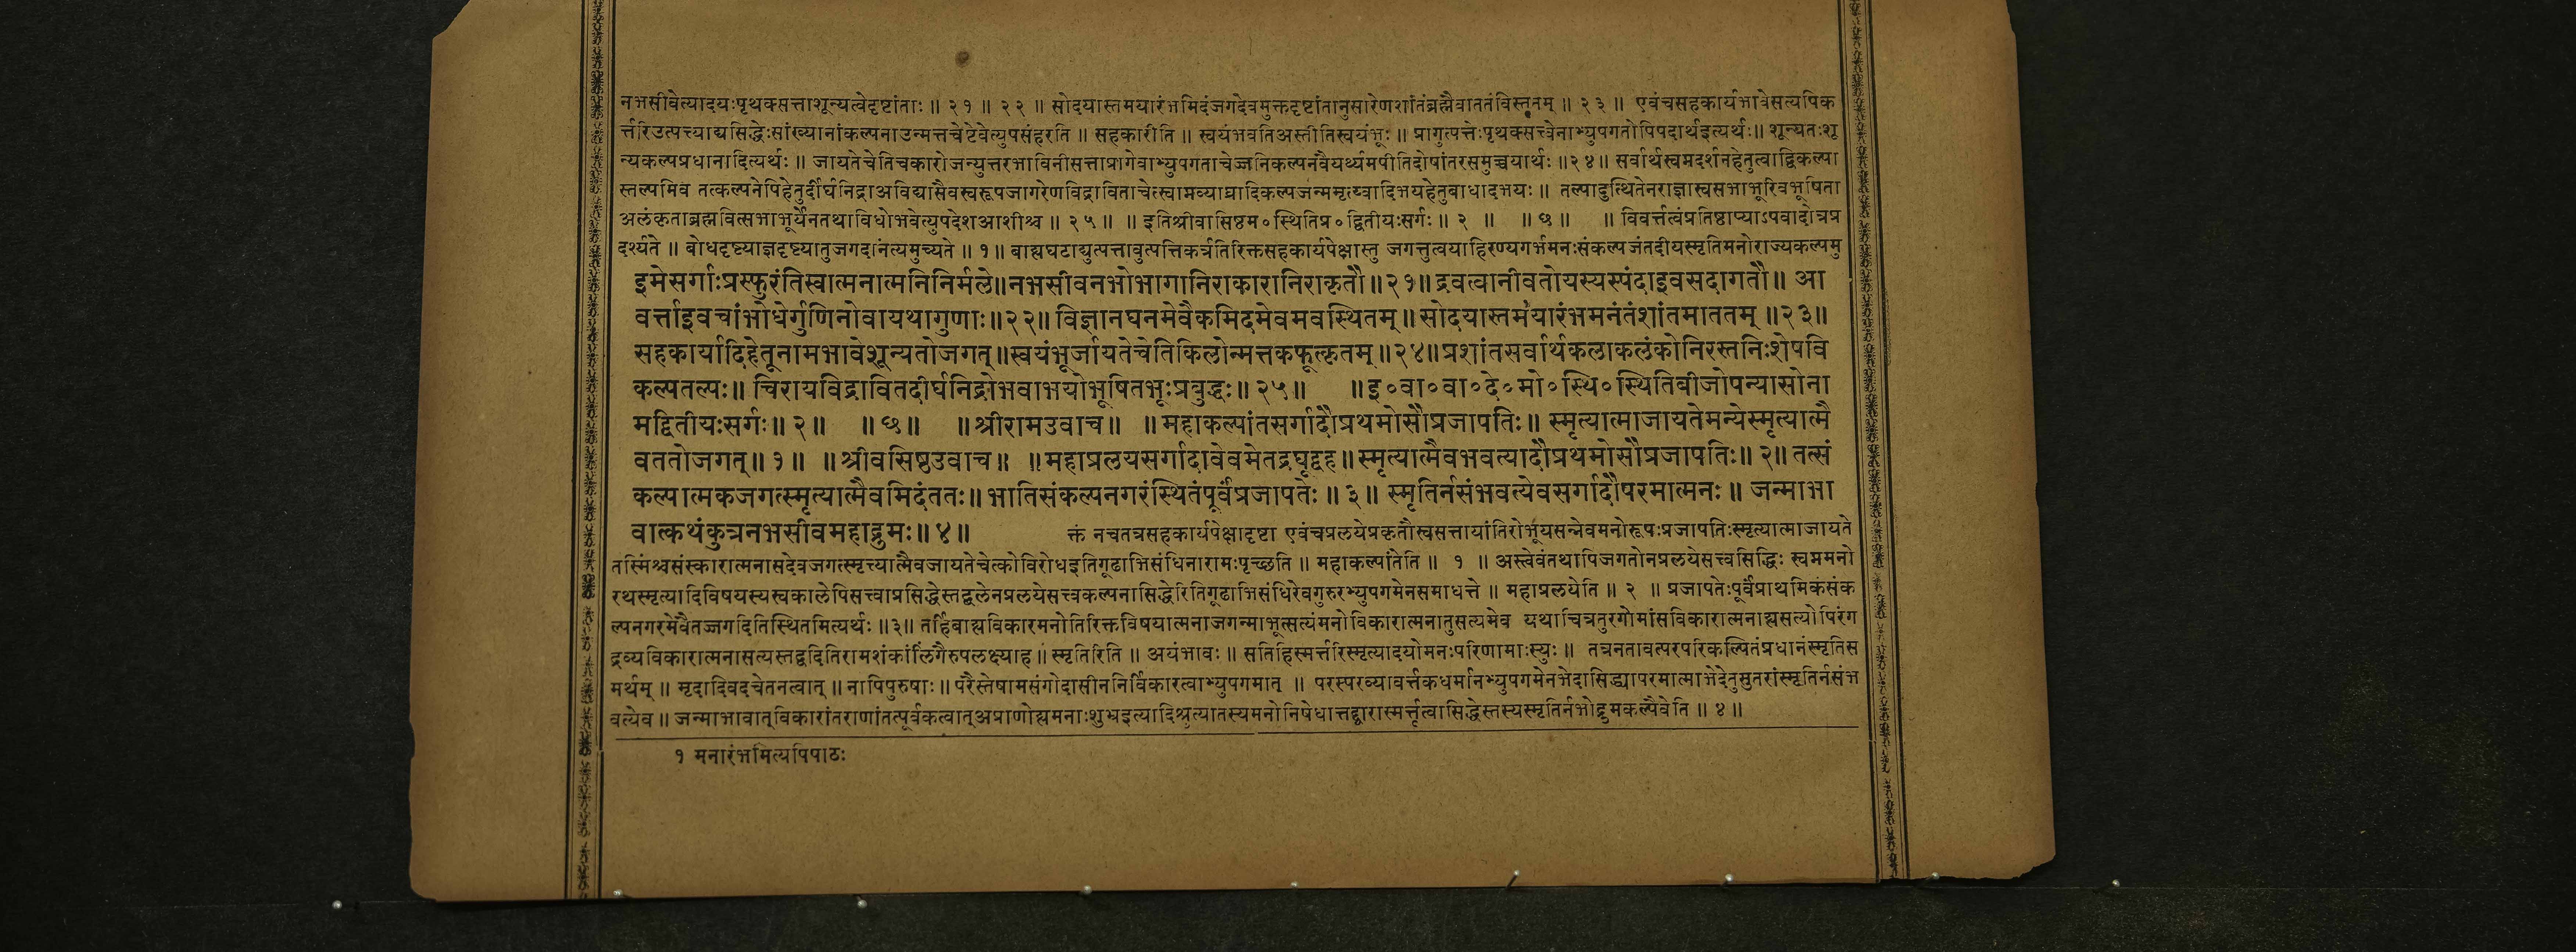 नभसीवेत्यादयःपृथक्सत्ताशून्यत्वेदृष्टांताः ॥ २१ ॥ २२ ॥ सोदयास्तमयारंभमिदंजगदेवमुक्तदृष्टांतानुसारेणशांतंब्रह्मैवाततंविस्तृतम् ॥ २३ ॥ एवंचसहकार्यभावेसत्यपिक
र्त्तरिउत्पत्त्याद्यसिद्धेःसांख्यानांकल्पनाउन्मत्तचेष्टेवेत्युपसंहरति ॥ सहकारीति ॥ स्वयंभवतिअस्तीतिस्वयंभूः ॥ प्रागुत्पत्तेःपृथक्सत्त्वेनाभ्युपगतोपिपदार्थइत्यर्थः॥ शून्यतःशू
न्यकल्पप्रधानादित्यर्थः ॥ जायतेचेतिचकारोजन्युत्तरभाविनीसत्ताप्रागेवाभ्युपगताचेज्जनिकल्पनंवैयर्थ्यमपीतिदोषांतरसमुच्चयार्थः ॥२४॥ सर्वार्थस्वप्नदर्शनहेतुत्वाद्विकल्पा
स्तल्पमिव तत्कल्पनेपिहेतुर्दीर्घनिद्राअविद्यासैवस्वरूपजागरेणविद्राविताचेत्स्वाप्नव्याघ्रादिकल्पजन्ममृत्य्वादिभयहेतुबाधादभयः ॥ तल्पादुत्थितेनराज्ञास्वसभाभूरिवभूषिता
अलंकृताब्रह्मवित्सभाभूर्येनतथाविधोभवेत्युपदेशआशीश्च ॥ २५ ॥ ॥ इतिश्रीवासिष्ठम॰स्थितिप्र॰द्वितीयःसर्गः ॥ २ ॥ ॥ छ ॥ ॥ विवर्त्तत्वंप्रतिष्ठाप्याऽपवादोत्रप्र
दर्श्यते ॥ बोधदृष्ट्याज्ञदृष्ट्यातुजगदानंत्यमुच्यते ॥ १ ॥ बाह्यघटाद्युत्पत्तावुत्पत्तिकर्त्रतिरिक्तसहकार्यपेक्षास्तु जगत्तुत्वयाहिरण्यगर्भमनःसंकल्पजंतदीयस्मृतिमनोराज्यकल्पमु
इमेसर्गाःप्रस्फुरंतिस्वात्मनात्मनिनिर्मले॥नभसीवनभोभागानिराकारानिराकृतौ॥२१॥द्रवत्वानीवतोयस्यस्पंदाइवसदागतौ॥ आ
वर्त्ताइवचांभोधेर्गुणिनोवायथागुणाः॥२२॥ विज्ञानघनमेवैकमिदमेवमवस्थितम्॥सोदयास्तम१यारंभमनंतंशांतमाततम् ॥२३॥
सहकार्यादिहेतूनामभावेशून्यतोजगत्॥स्वयंभूर्जायतेचेतिकिलोन्मत्तकफूत्कृतम्॥२४॥प्रशांतसर्वार्थकलाकलंकोनिरस्तनिःशेषवि
कल्पतल्पः॥ चिरायविद्रावितदीर्घनिद्रोभवाभयोभूषितभूःप्रबुद्धः॥२५॥ ॥इ॰वा॰वा॰दे॰मो॰स्थि॰स्थितिबीजोपन्यासोना
मद्वितीयःसर्गः॥२॥ ॥छ॥ ॥श्रीरामउवाच॥ ॥महाकल्पांतसर्गादौप्रथमोसौप्रजापतिः॥ स्मृत्यात्माजायतेमन्येस्मृत्यात्मै
वततोजगत्॥१॥ ॥श्रीवसिष्ठउवाच॥ ॥महाप्रलयसर्गादावेवमेतद्रघूद्वह॥स्मृत्यात्मैवभवत्यादौप्रथमोसौप्रजापतिः॥२॥तत्सं
कल्पात्मकजगत्स्मृत्यात्मैवमिदंततः॥भातिसंकल्पनगरंस्थितंपूर्वंप्रजापतेः॥३॥ स्मृतिर्नसंभवत्येवसर्गादौपरमात्मनः॥ जन्माभा
वात्कथंकुत्रनभसीवमहाद्रुमः॥४॥ क्तं नचतत्रसहकार्यपेक्षादृष्टा एवंचप्रलयेप्रकृतौस्वसत्तायांतिरोभूयसन्नेवमनोरूपःप्रजापतिःस्मृत्यात्माजायते
तस्मिंश्चसंस्कारात्मनासदेवजगत्स्मृत्त्यात्मैवजायतेचेत्कोविरोधइतिगूढाभिसंधिनारामःपृच्छति ॥ महाकल्पांतेति ॥ १ ॥ अस्त्वेवंतथापिजगतोनप्रलयेसत्त्वसिद्धिः स्वप्नमनो
रथस्मृत्यादिविषयस्यस्वकालेपिसत्त्वाप्रसिद्धेस्तद्बलेनप्रलयेसत्त्वकल्पनासिद्धेरितिगूढाभिसंधिरेवगुरुरभ्युपगमेनसमाधत्ते ॥ महाप्रलयेति ॥ २ ॥ प्रजापतेःपूर्वंप्राथमिकंसंक
ल्पनगरमेवैतज्जगदितिस्थितमित्यर्थः ॥३॥ तर्हिबाह्यविकारमनोतिरिक्तविषयात्मनाजगन्माभूत्सत्यंमनोविकारात्मनातुसत्यमेव यथाचित्रतुरगोमांसविकारात्मनाह्यसत्योपिरंग
द्रव्यविकारात्मनासत्यस्तद्वदितिरामशंकांलिंगैरुपलक्ष्याह ॥ स्मृतिरिति ॥ अयंभावः ॥ सतिहिस्मर्त्तरिस्मृत्यादयोमनःपरिणामाःस्युः ॥ तत्रनतावत्परपरिकल्पितंप्रधानंस्मृतिस
मर्थम् ॥ मृदादिवदचेतनत्वात् ॥ नापिपुरुषाः ॥ परैस्तेषामसंगोदासीननिर्विकारत्वाभ्युपगमात् ॥ परस्परव्यावर्त्तकधर्मानभ्युपगमेनभेदासिद्ध्यापरमात्माभेदेतुसुतरांस्मृतिर्नसंभ
वत्येव ॥ जन्माभावात्विकारांतराणांतत्पूर्वकत्वात्अप्राणोह्यमनाःशुभ्रइत्यादिश्रुत्यातस्यमनोनिषेधात्तद्द्वारास्मर्त्तृत्वासिद्धेस्तस्यस्मृतिर्नभोद्रुमकल्पैवेति ॥ ४ ॥
१ मनारंभमित्यपिपाठः